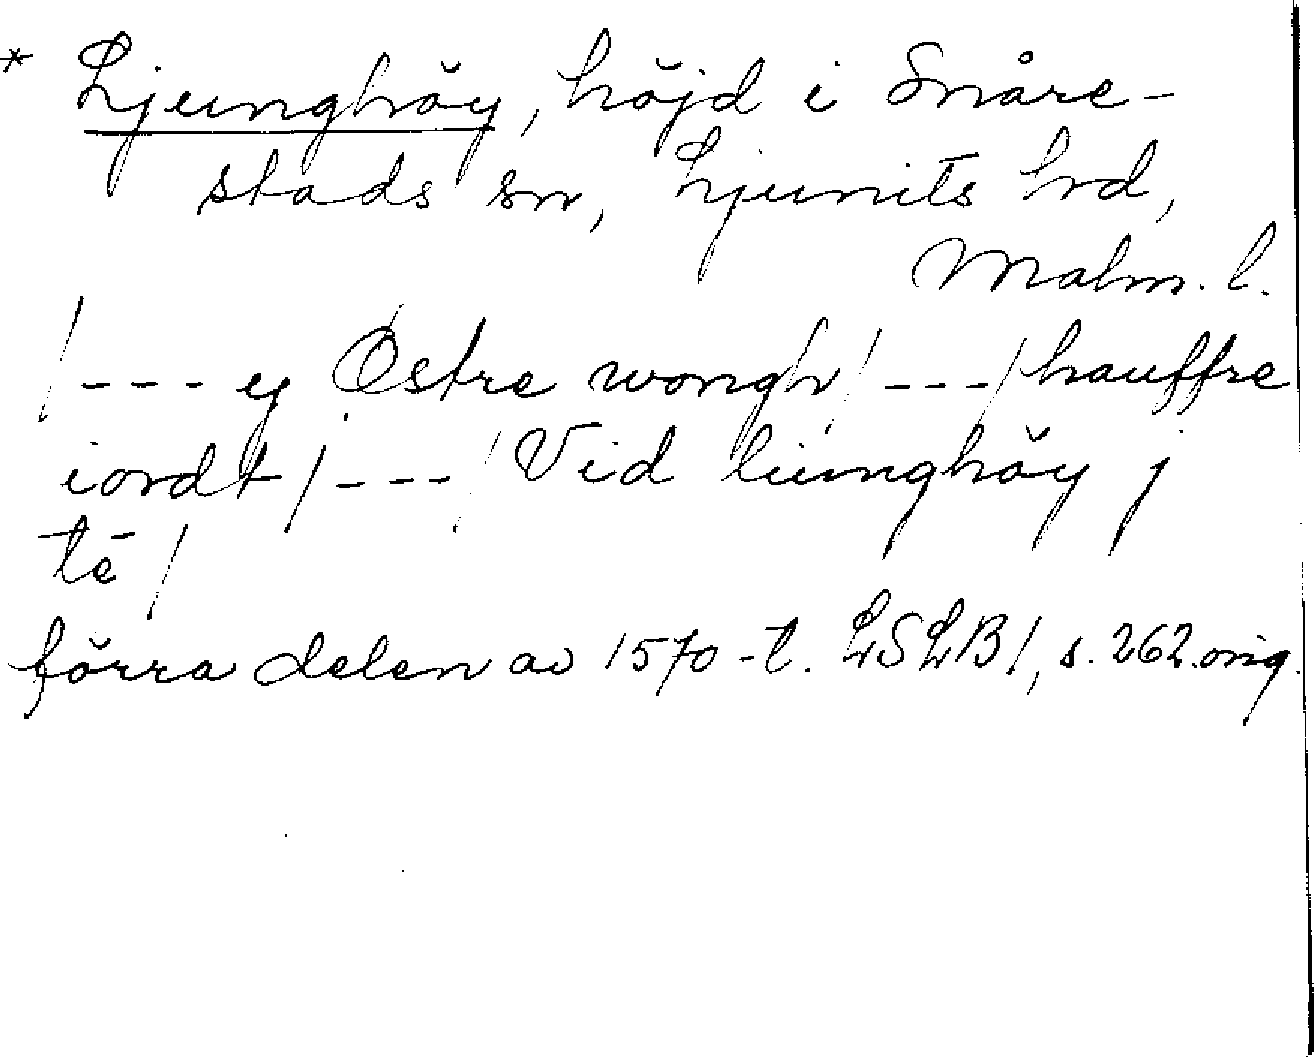 * Ljunghöy, höjd i Snåre-
stads sn, Ljunits hd,
Malm. l.
/--- ej Østre wongh/ ---/ hauffre
iordt / --- / Vid liunghöy j
tē /
förra delen av 1570-t. LSLB1, s. 262 orig.